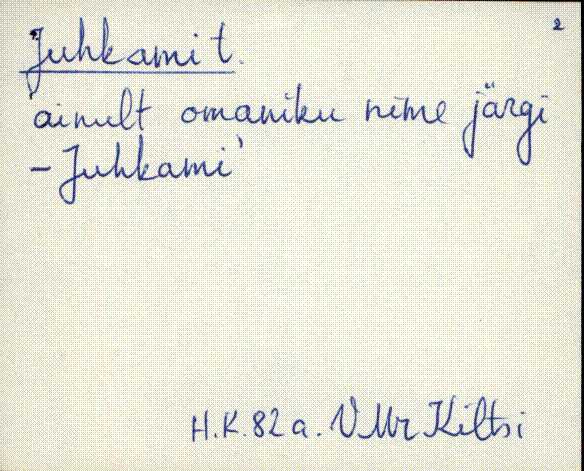 2
Juhkami t.
'ainult omaniku nime järgi
- Juhkami'
H.K. 82 a. VMr Kiltsi